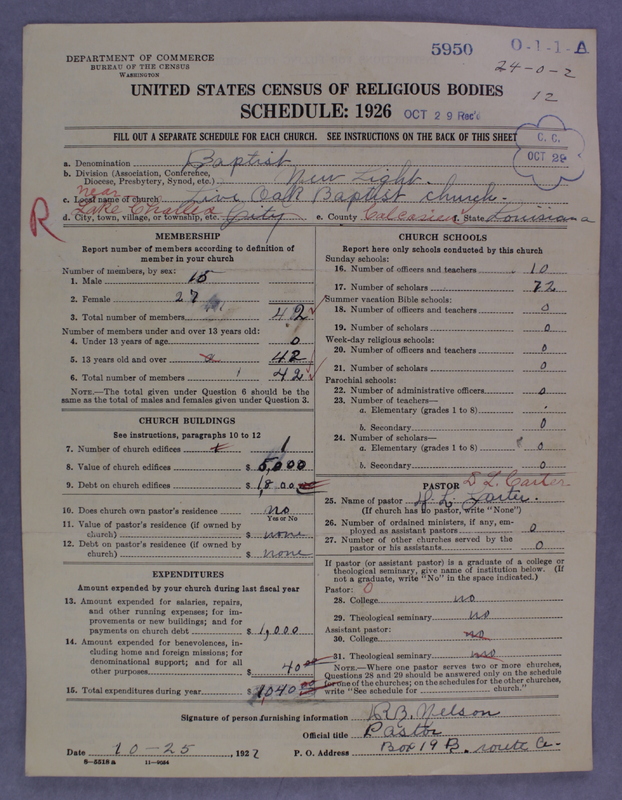 5950 0-1-1-A
DEPARTMENT OF COMMERCE
BUREAU OF THE CENSUS
WASHINGTON
24-0-2
12
UNITED STATES CENSUS OF RELIGIOUS BODIES
SCHEDULE: 1926 OCT 29 Rec'd
FILL OUT A SEPARATE SCHEDULE FOR EACH CHURCH. SEE INSTRUCTIONS ON THE BACK OF THIS SHEET
C. C.
OCT 29
a. Denomination Baptist
b. Division (Association, Conference, Diocese, Presbytery, Synod, etc.) New Light.
near
c. Local name of church Live Oak Baptist church.
R
d. City, town, village, or township, etc. Lake Charles City e. County Calcasieu f. State Louisiana
MEMBERSHIP
Report number of members according to definition of
member in your church
Number of members, by sex:
1. Male 15
2. Female 27
3. Total number of members 42
Number of members under and over 13 years old:
4. Under 13 years of age 0
5. 13 years old and over 42
6. Total number of members 42
NOTE.—The total given under Question 6 should be the
same as the total of males and females given under Question 3.
CHURCH BUILDINGS
See instructions, paragraphs 10 to 12
7. Number of church edifices 1
8. Value of church edifices $ 5,000
9. Debt on church edifices $ 1,800
10. Does church own pastor's residence? no
Yes or No
11. Value of pastor's residence (if owned by
church) $ none
12. Debt on pastor's residence (if owned by
church) $ none
EXPENDITURES
Amount expended by your church during last fiscal year
13. Amount expended for salaries, repairs,
and other running expenses; for im-
provements or new buildings; and for
payments on church debt $ 1,000
14. Amount expended for benevolences, in-
cluding home and foreign missions; for
denominational support; and for all
other purposes $ 40 00
15. Total expenditures during year $ 1,040 00
CHURCH SCHOOLS
Report here only schools conducted by this church
Sunday schools:
16. Number of officers and teachers 10
17. Number of scholars 72
Summer vacation Bible schools:
18. Number of officers and teachers 0
19. Number of scholars 0
Week-day religious schools:
20. Number of officers and teachers 0
21. Number of scholars 0
Parochial schools:
22. Number of administrative officers 0
23. Number of teachers—
a. Elementary (grades 1 to 8)
b. Secondary 0
24. Number of scholars—
a. Elementary (grades 1 to 8) 0
b. Secondary 0
PASTOR D L. Carter
25. Name of pastor
(If church has no pastor, write "None")
26. Number of ordained ministers, if any, em-
ployed as assistant pastors 0
27. Number of other churches served by the
pastor or his assistants 0
If pastor (or assistant pastor) is a graduate of a college or
theological seminary, give name of institution below. (If
not a graduate, write "No" in the space indicated.)
Pastor: 0
28. College no
29. Theological seminary no
Assistant pastor:
30. College no
31. Theological seminary no
NOTE.—Where one pastor serves two or more churches,
Questions 28 and 29 should be answered only on the schedule
for one of the churches; on the schedules for the other churches,
write "See schedule for church."
Signature of person furnishing information R.B. Nelson
Official title Pastor
Date 10-25, 1927 P. O. Address Box 19 B. route
8—5518 a 11—9024